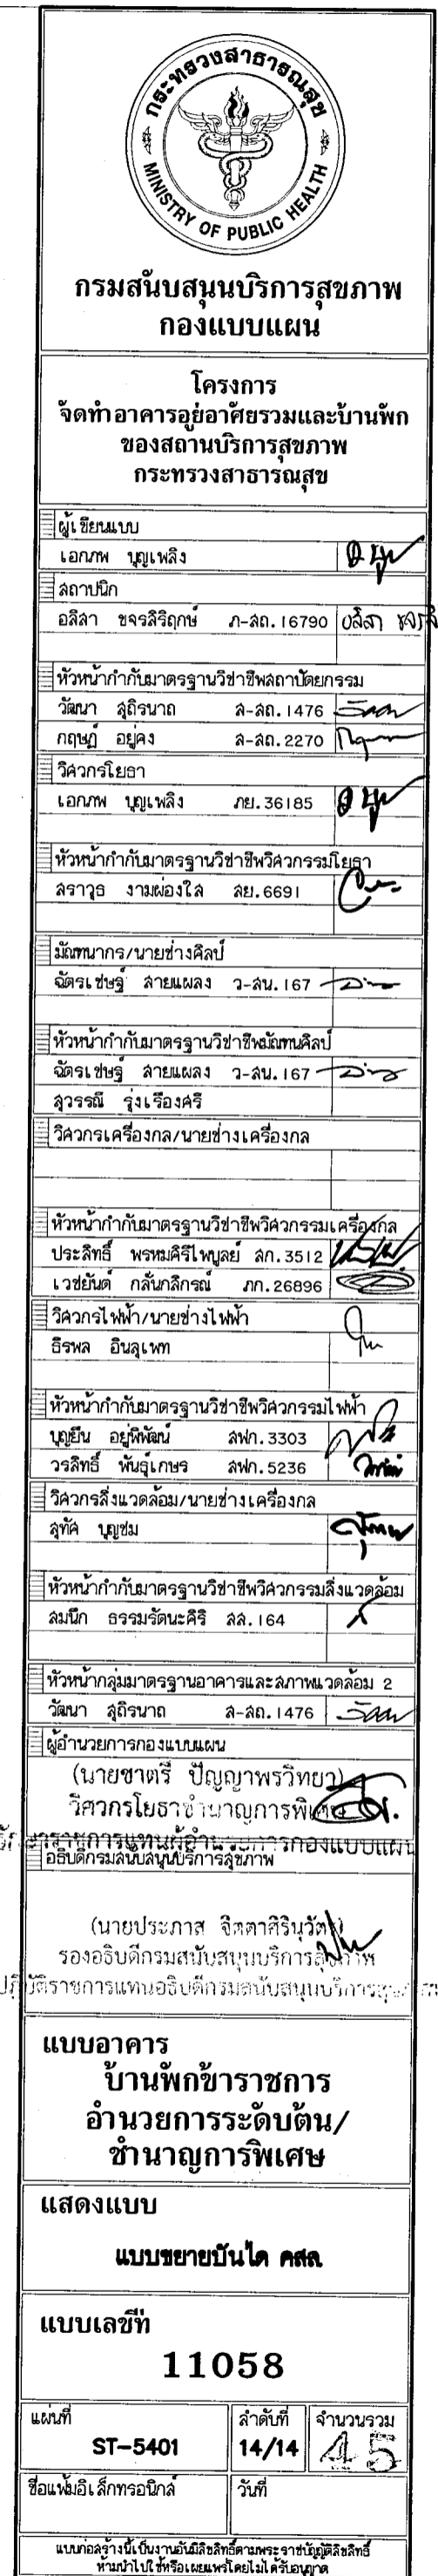 กระทรวงสาธารณสุข
MINISTRY OF PUBLIC HEALTH
กรมสนับสนุนบริการสุขภาพ
กองแบบแผน
โครงการ
จัดทำอาคารอยู่อาศัยรวมและบ้านพัก
ของสถานบริการสุขภาพ
กระทรวงสาธารณสุข
ผู้เขียนแบบ
เอกภพ บุญเพลิง
สถาปนิก
อลิสา ขจรสิริฤกษ์ ภ-สถ.16790 อลิสา
หัวหน้ากำกับมาตรฐานวิชาชีพสถาปัตยกรรม
วัฒนา สุถิรนาถ ส-สถ.1476
กฤษฏ์ อยู่คง ส-สถ.2270
วิศวกรโยธา
เอกภพ บุญเพลิง ภย.36185
หัวหน้ากำกับมาตรฐานวิชาชีพวิศวกรรมโยธา
สราวุธ งามผ่องใส สย.6691
มัณฑนากร/นายช่างศิลป์
ฉัตรเชษฐ์ สายแผลง ว-สน.167
หัวหน้ากำกับมาตรฐานวิชาชีพมัณฑนศิลป์
ฉัตรเชษฐ์ สายแผลง ว-สน.167
สุวรรณี รุ่งเรืองศรี
วิศวกรเครื่องกล/นายช่างเครื่องกล
หัวหน้ากำกับมาตรฐานวิชาชีพวิศวกรรมเครื่องกล
ประสิทธิ์ พรหมคิรีไพบูลย์ สก.3512
เวชยันต์ กลั่นกลิกรณ์ ภก.26896
วิศวกรไฟฟ้า/นายช่างไฟฟ้า
ธีรพล อินลุเพท
หัวหน้ากำกับมาตรฐานวิชาชีพวิศวกรรมไฟฟ้า
บุญยืน อยู่พิพัฒน์ สฟก.3303
วรสิทธิ์ พันธุ์เกษร สฟก.5236
วิศวกรสิ่งแวดล้อม/นายช่างเครื่องกล
สุทัศ บุญชม
หัวหน้ากำกับมาตรฐานวิชาชีพวิศวกรรมสิ่งแวดล้อม
สมนึก ธรรมรัตนะคิริ สส.164
หัวหน้ากลุ่มมาตรฐานอาคารและสภาพแวดล้อม 2
วัฒนา สุถิรนาถ ส-สถ.1476
ผู้อำนวยการกองแบบแผน
(นายชาตรี ปัญญาพรวิทยา)
วิศวกรโยธาชำนาญการพิเศษ
รักษาราชการแทนผู้อำนวยการกองแบบแผน
อธิบดีกรมสนับสนุนบริการสุขภาพ
(นายประภาส จิตตาศิรินุวัตร)
รองอธิบดีกรมสนับสนุนบริการสุขภาพ
ปฏิบัติราชการแทนอธิบดีกรมสนับสนุนบริการสุขภาพ
แบบอาคาร
บ้านพักข้าราชการ
อำนวยการระดับต้น/
ชำนาญการพิเศษ
แสดงแบบ
แบบขยายบันได คสล
แบบเลขที่
11058
แผ่นที่ ลำดับที่ จำนวนรวม
ST-5401 14/14 45
ชื่อแฟ้มอิเล็กทรอนิกส์ วันที่
แบบก่อสร้างนี้เป็นงานอันมีลิขสิทธิ์ตามพระราชบัญญัติลิขสิทธิ์
ห้ามนำไปใช้หรือเผยแพร่โดยไม่ได้รับอนุญาต